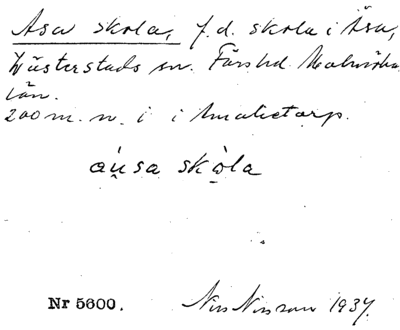 Åsa skola, f.d. skola i Åsa,
Västerstads sn. Färs hd. Malmöhus
län.
200 m. n. i i Amalietorp.
áu̯sa skò̠la
Nr 5600. Nils Nilsson 1937.